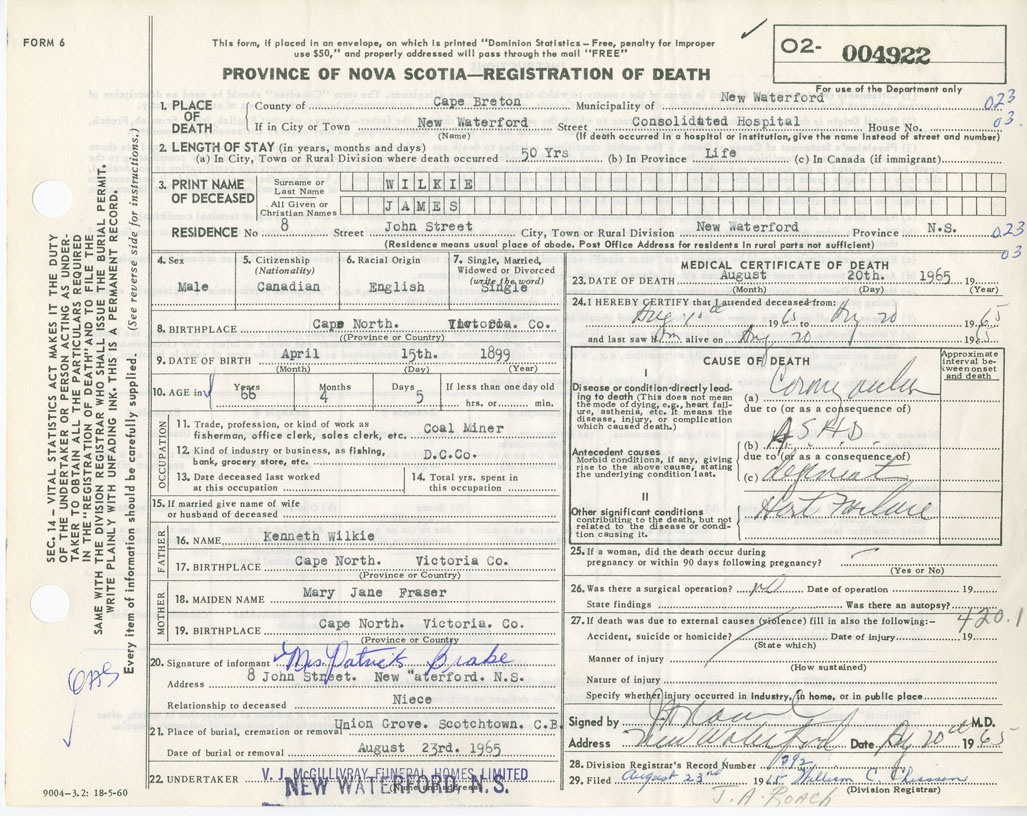 FORM 6
This form, if placed in an envelope, on which is printed "Dominion Statistics – Free, penalty for improper
use $50," and properly addressed will pass through the mail "FREE"
O2- 004922
PROVINCE OF NOVA SCOTIA—REGISTRATION OF DEATH
For use of the Department only
1. PLACE OF DEATH
County of Cape Breton Municipality of New Waterford 023
If in City or Town New Waterford Street Consolidated Hospital House No. 03.
(Name) (If death occurred in a hospital or institution, give the name instead of street and number)
2. LENGTH OF STAY (in years, months and days)
(a) In City, Town or Rural Division where death occurred 50 Yrs (b) In Province Life (c) In Canada (if immigrant)
3. PRINT NAME OF DECEASED
Surname or Last Name WILKIE
All Given or Christian Names JAMES
RESIDENCE No 8 Street John Street City, Town or Rural Division New Waterford Province N.S. 023
(Residence means usual place of abode. Post Office Address for residents in rural parts not sufficient) 03
4. Sex
Male
5. Citizenship (Nationality)
Canadian
6. Racial Origin
English
7. Single, Married, Widowed or Divorced (write the word)
Single
8. BIRTHPLACE Cape North. Victoria. Co.
(Province or Country)
9. DATE OF BIRTH April 15th. 1899
(Month) (Day) (Year)
10. AGE in Years 66 Months 4 Days 5 If less than one day old
hrs. or min.
OCCUPATION
11. Trade, profession, or kind of work as
fisherman, office clerk, sales clerk, etc. Coal Miner
12. Kind of industry or business, as fishing,
bank, grocery store, etc. D.C.Co.
13. Date deceased last worked
at this occupation
14. Total yrs. spent in
this occupation
15. If married give name of wife
or husband of deceased
FATHER
16. NAME Kenneth Wilkie
17. BIRTHPLACE Cape North. Victoria Co.
(Province or Country)
MOTHER
18. MAIDEN NAME Mary Jane Fraser
19. BIRTHPLACE Cape North. Victoria. Co.
(Province or Country)
20. Signature of informant Mrs. Patrick Brake
Address 8 John Street. New "aterford. N.S.
Relationship to deceased Niece
21. Place of burial, cremation or removal Union Grove. Scotchtown. C.B.
Date of burial or removal August 23rd. 1965
22. UNDERTAKER V. J. McGILLIVRAY FUNERAL HOMES LIMITED
(Name and address)
NEW WATERFORD, N.S.
MEDICAL CERTIFICATE OF DEATH
23. DATE OF DEATH August 20th. 1965 19
(Month) (Day) (Year)
24. I HEREBY CERTIFY that I attended deceased from:
Aug 1965 to Aug 20 1965
and last saw him alive on Aug 20 1965
CAUSE OF DEATH
Approximate interval between onset and death
I
Disease or condition directly leading to death (This does not mean the mode of dying, e.g., heart failure, asthenia, etc. It means the disease, injury, or complication which caused death.)
(a) Coronary
due to (or as a consequence of)
Antecedent causes
Morbid condition, if any, giving rise to the above cause, stating the underlying condition last.
(b) ASHD.
due to (or as a consequence of)
(c)
II
Other significant conditions
contributing to the death, but not related to the disease or condition causing it.
Hert Failure
25. If a woman, did the death occur during
pregnancy or within 90 days following pregnancy?
(Yes or No)
26. Was there a surgical operation? no Date of operation 19
State findings Was there an autopsy?
27. If death was due to external causes (violence) fill in also the following:– 420.1
Accident, suicide or homicide? Date of injury 19
(State which)
Manner of injury
(How sustained)
Nature of injury
Specify whether injury occurred in industry, in home, or in public place
Signed by M.D.
Address New Waterford Date Aug 20th 1965
28. Division Registrar's Record Number 192
29. Filed August 23rd 1965 William C. Chiasson
(Division Registrar)
J. A. ROACH
SEC. 14 – VITAL STATISTICS ACT MAKES IT THE DUTY
OF THE UNDERTAKER OR PERSON ACTING AS UNDER-
TAKER TO OBTAIN ALL THE PARTICULARS REQUIRED
IN THE "REGISTRATION OF DEATH" AND TO FILE THE
SAME WITH THE DIVISION REGISTRAR WHO SHALL ISSUE THE BURIAL PERMIT.
WRITE PLAINLY WITH UNFADING INK. THIS IS A PERMANENT RECORD.
Every item of information should be carefully supplied. (See reverse side for instructions.)
9004–3.2: 18-5-60